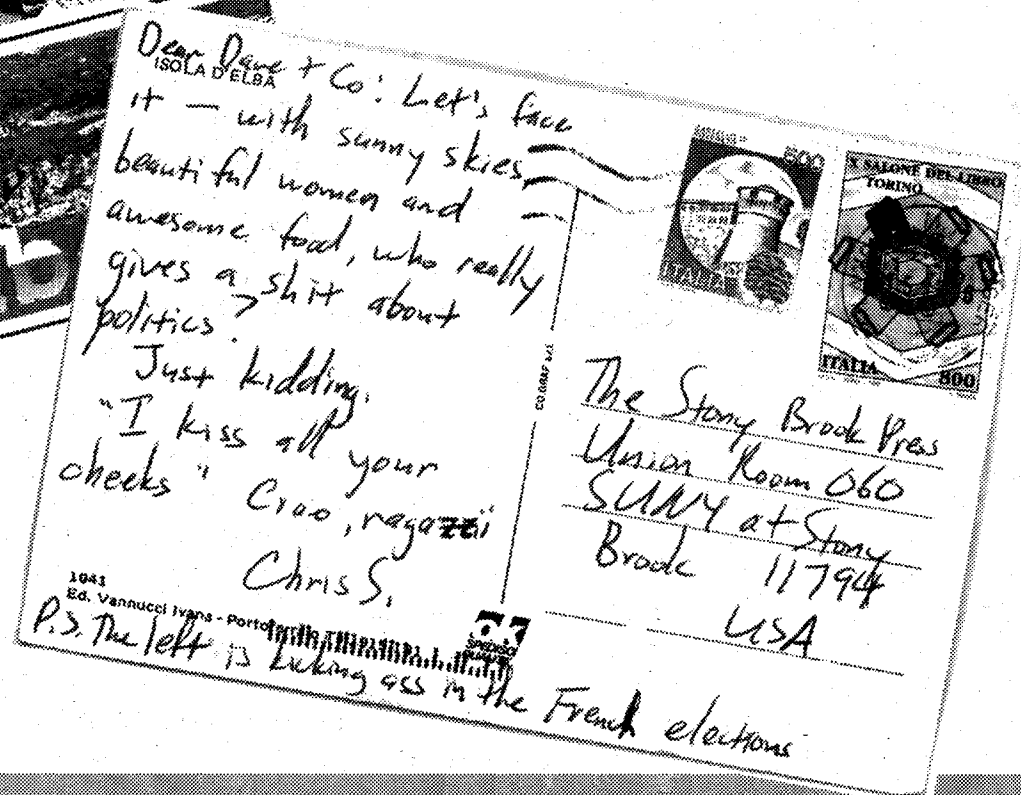 Dear Dave + Co: Let's face
ISOLA D'ELBA
it — with sunny skies,
beautiful women and
awesome food, who really
gives a shit about
politics?
Just kidding.
"I kiss all your
cheeks" Ciao, ragazzii
Chris S.
1041
Ed. Vannucci Ivans - Porto
P.S. The left is kicking ass in the French elections
CO.GRAF
500
ITALIA
X SALONE DEL LIBRO
TORINO
ITALIA 800
The Stony Brook Press
Union Room 060
SUNY at Stony
Brook 11794
USA